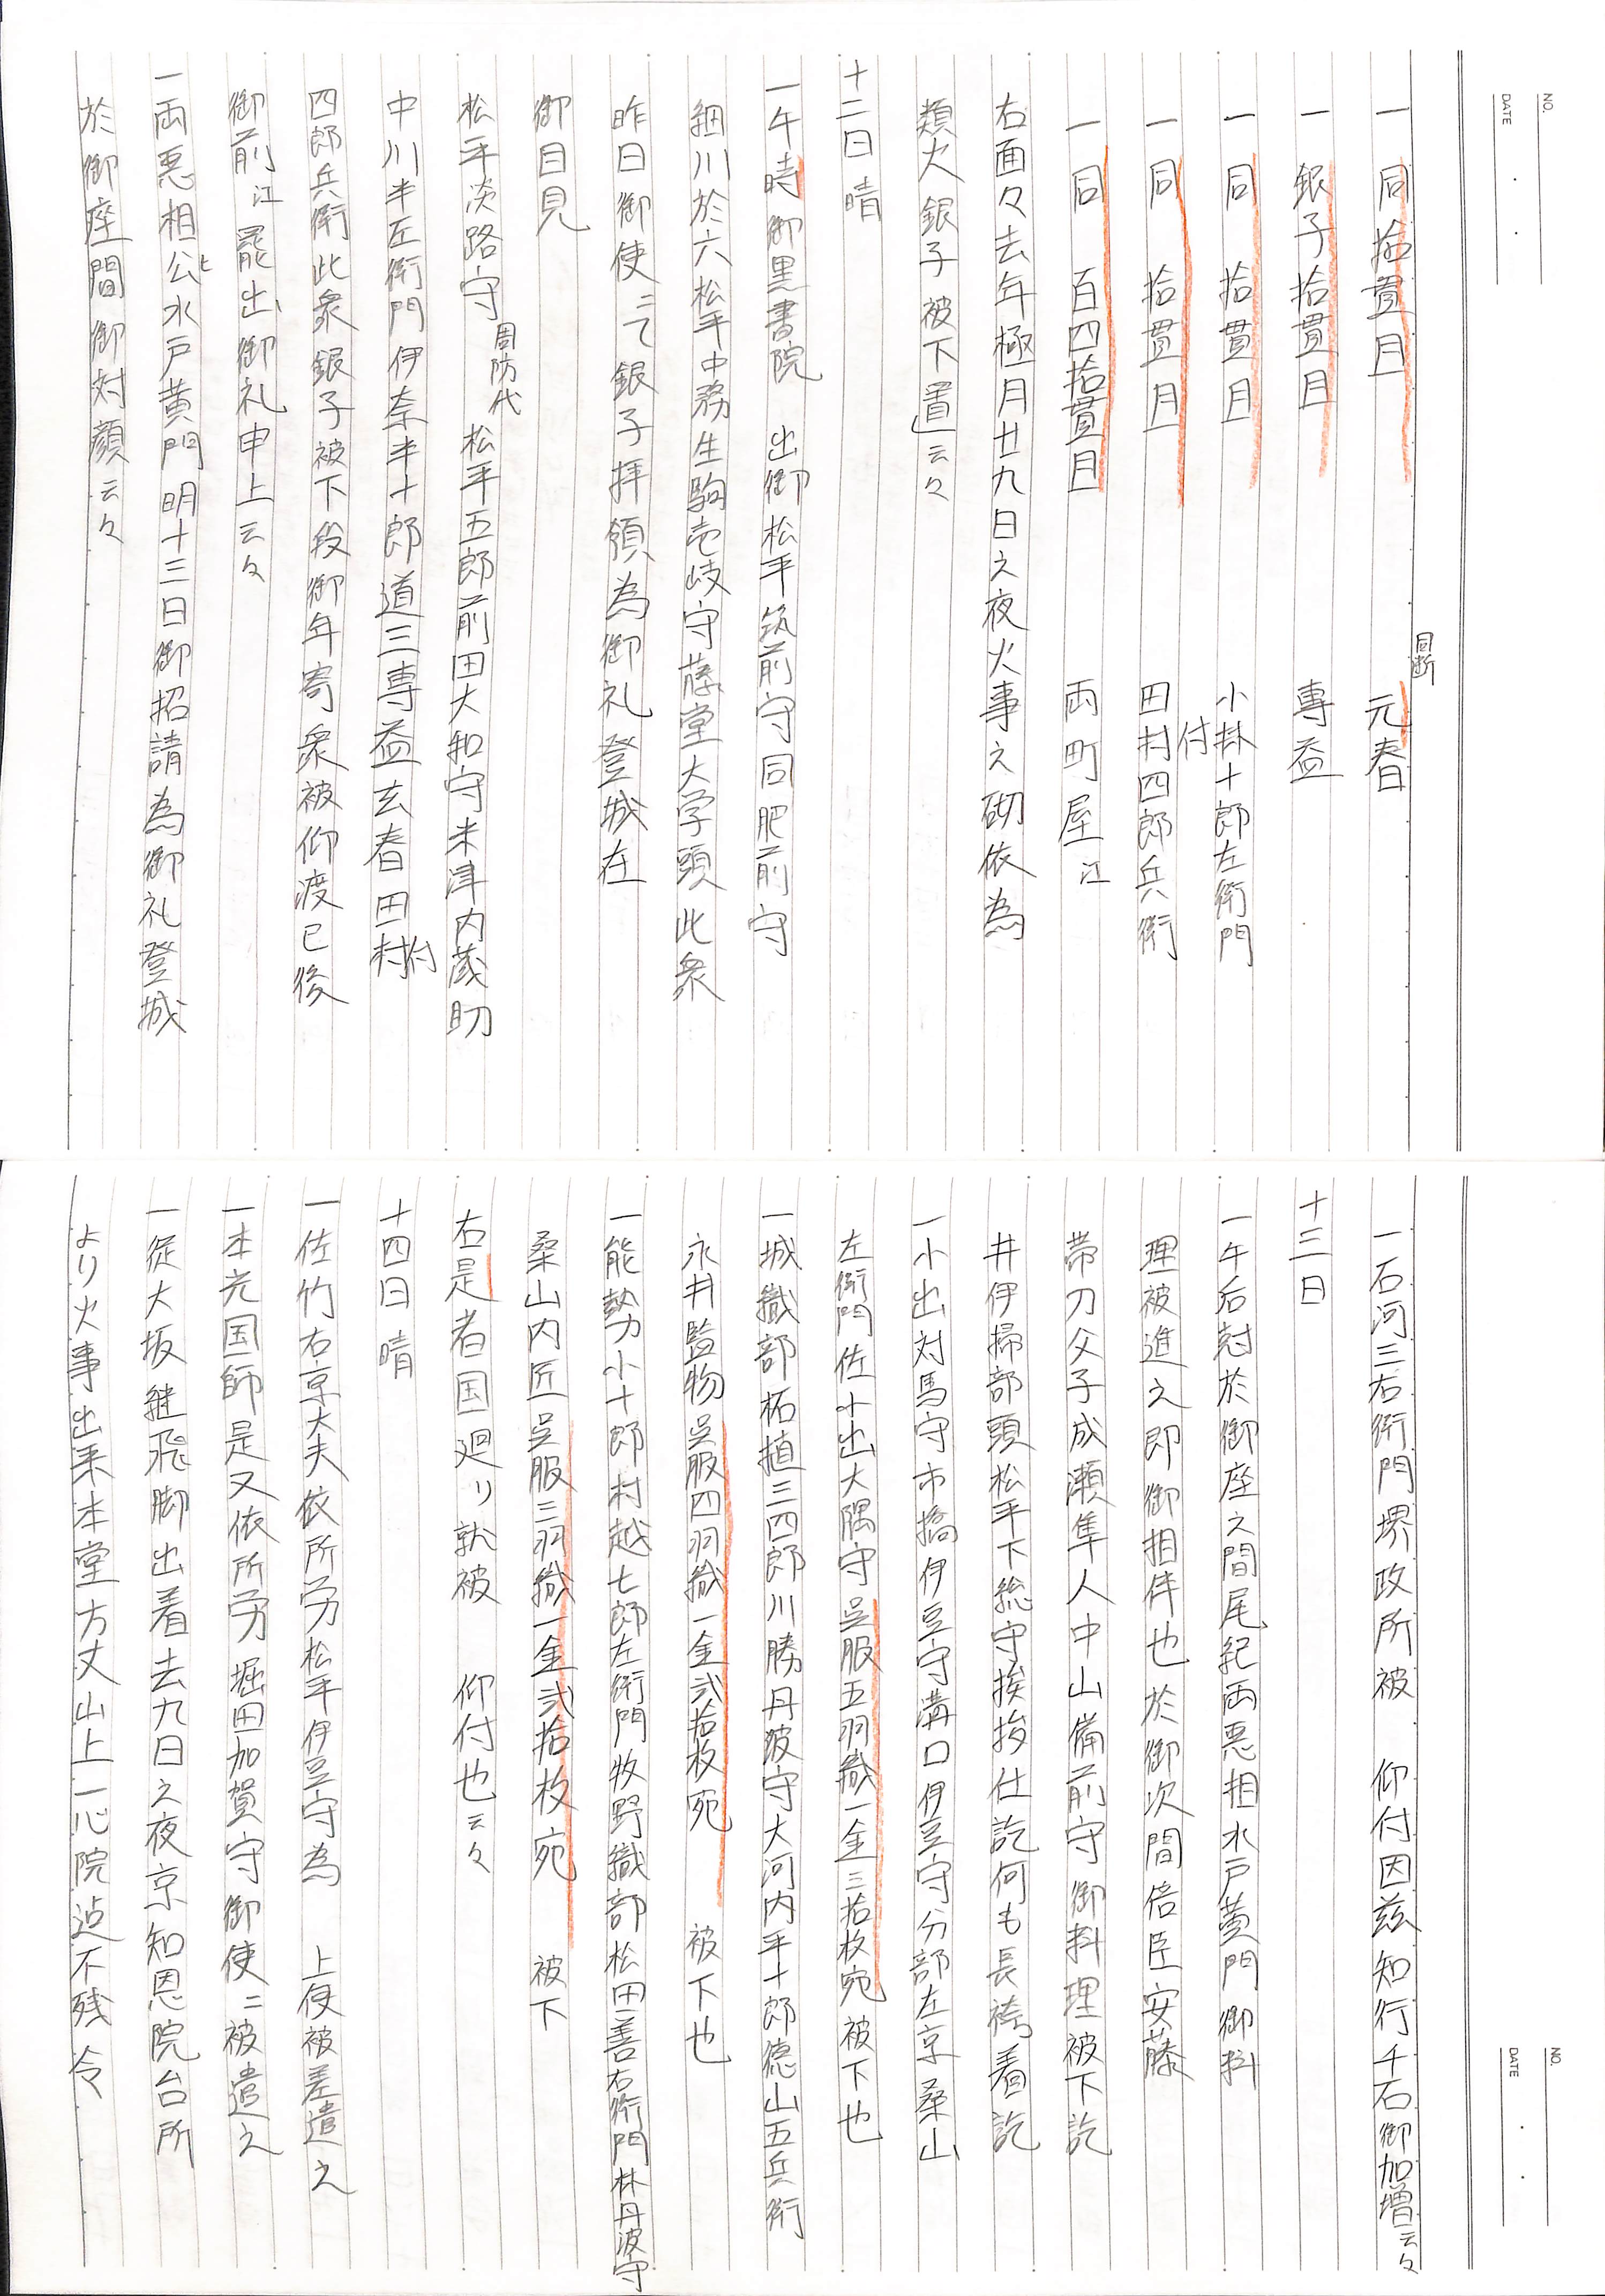 NO.
DATE
一 同 拾貫目 同断 元春
一 銀子拾貫目 專益
一 同 拾貫目 小林十郎左衛門
一 同 拾貫目 田村四郎兵衛
付
一 同 百四拾貫目 両町屋江
右面々去年極月廿九日之夜火事之砌依為
類火銀子被下置云々
十二日 晴
一午時御黒書院 出御松平筑前守同肥前守
細川於六松平中務生駒壱岐守藤堂大学頭此衆
昨日御使ニて銀子拝領為御礼登城在
御目見
松平淡路守 周防代 松平五郎前田大和守米津内蔵助
中川半左衛門伊奈半十郎道三專益玄春田村
付
四郎兵衛此衆銀子被下段御年寄衆被仰渡已後
御前江罷出御礼申上云々
一両悪相公ヒ水戸黄門明十三日御招請為御礼登城
於御座間御対顔云々
NO.
DATE
一石河三右衛門堺政所被 仰付因玆知行千石御加増云々
十三日
一午后尅於御座之間尾紀両悪相水戸黄門御料
理被進之即御相伴也於御次間倍臣安藤
帯刀父子成瀬隼人中山備前守御料理被下訖
井伊掃部頭松平下総守挨拶仕訖何も長袴着訖
一小出対馬守市橋伊豆守溝口伊豆守分部左京桑山
左衛門佐小出大隅守呉服五羽織一金三拾枚宛被下也
一城織部柘植三四郎川勝丹波守大河内平十郎徳山五兵衛
永井監物呉服四羽織一金弐拾枚宛 被下也
一能勢小十郎村越七郎左衛門牧野織部松田善右衛門林丹波守
桑山内匠呉服三羽織一金弐拾枚宛 被下
右是者国廻り就被 仰付也云々
十四日 晴
一佐竹右京大夫依所労松平伊豆守為 上使被差遣之
一本光国師是又依所労堀田加賀守御使ニ被遣之
一従大坂継飛脚出着去九日之夜京知恩院台所
より火事出来本堂方丈山上一心院迠不残令